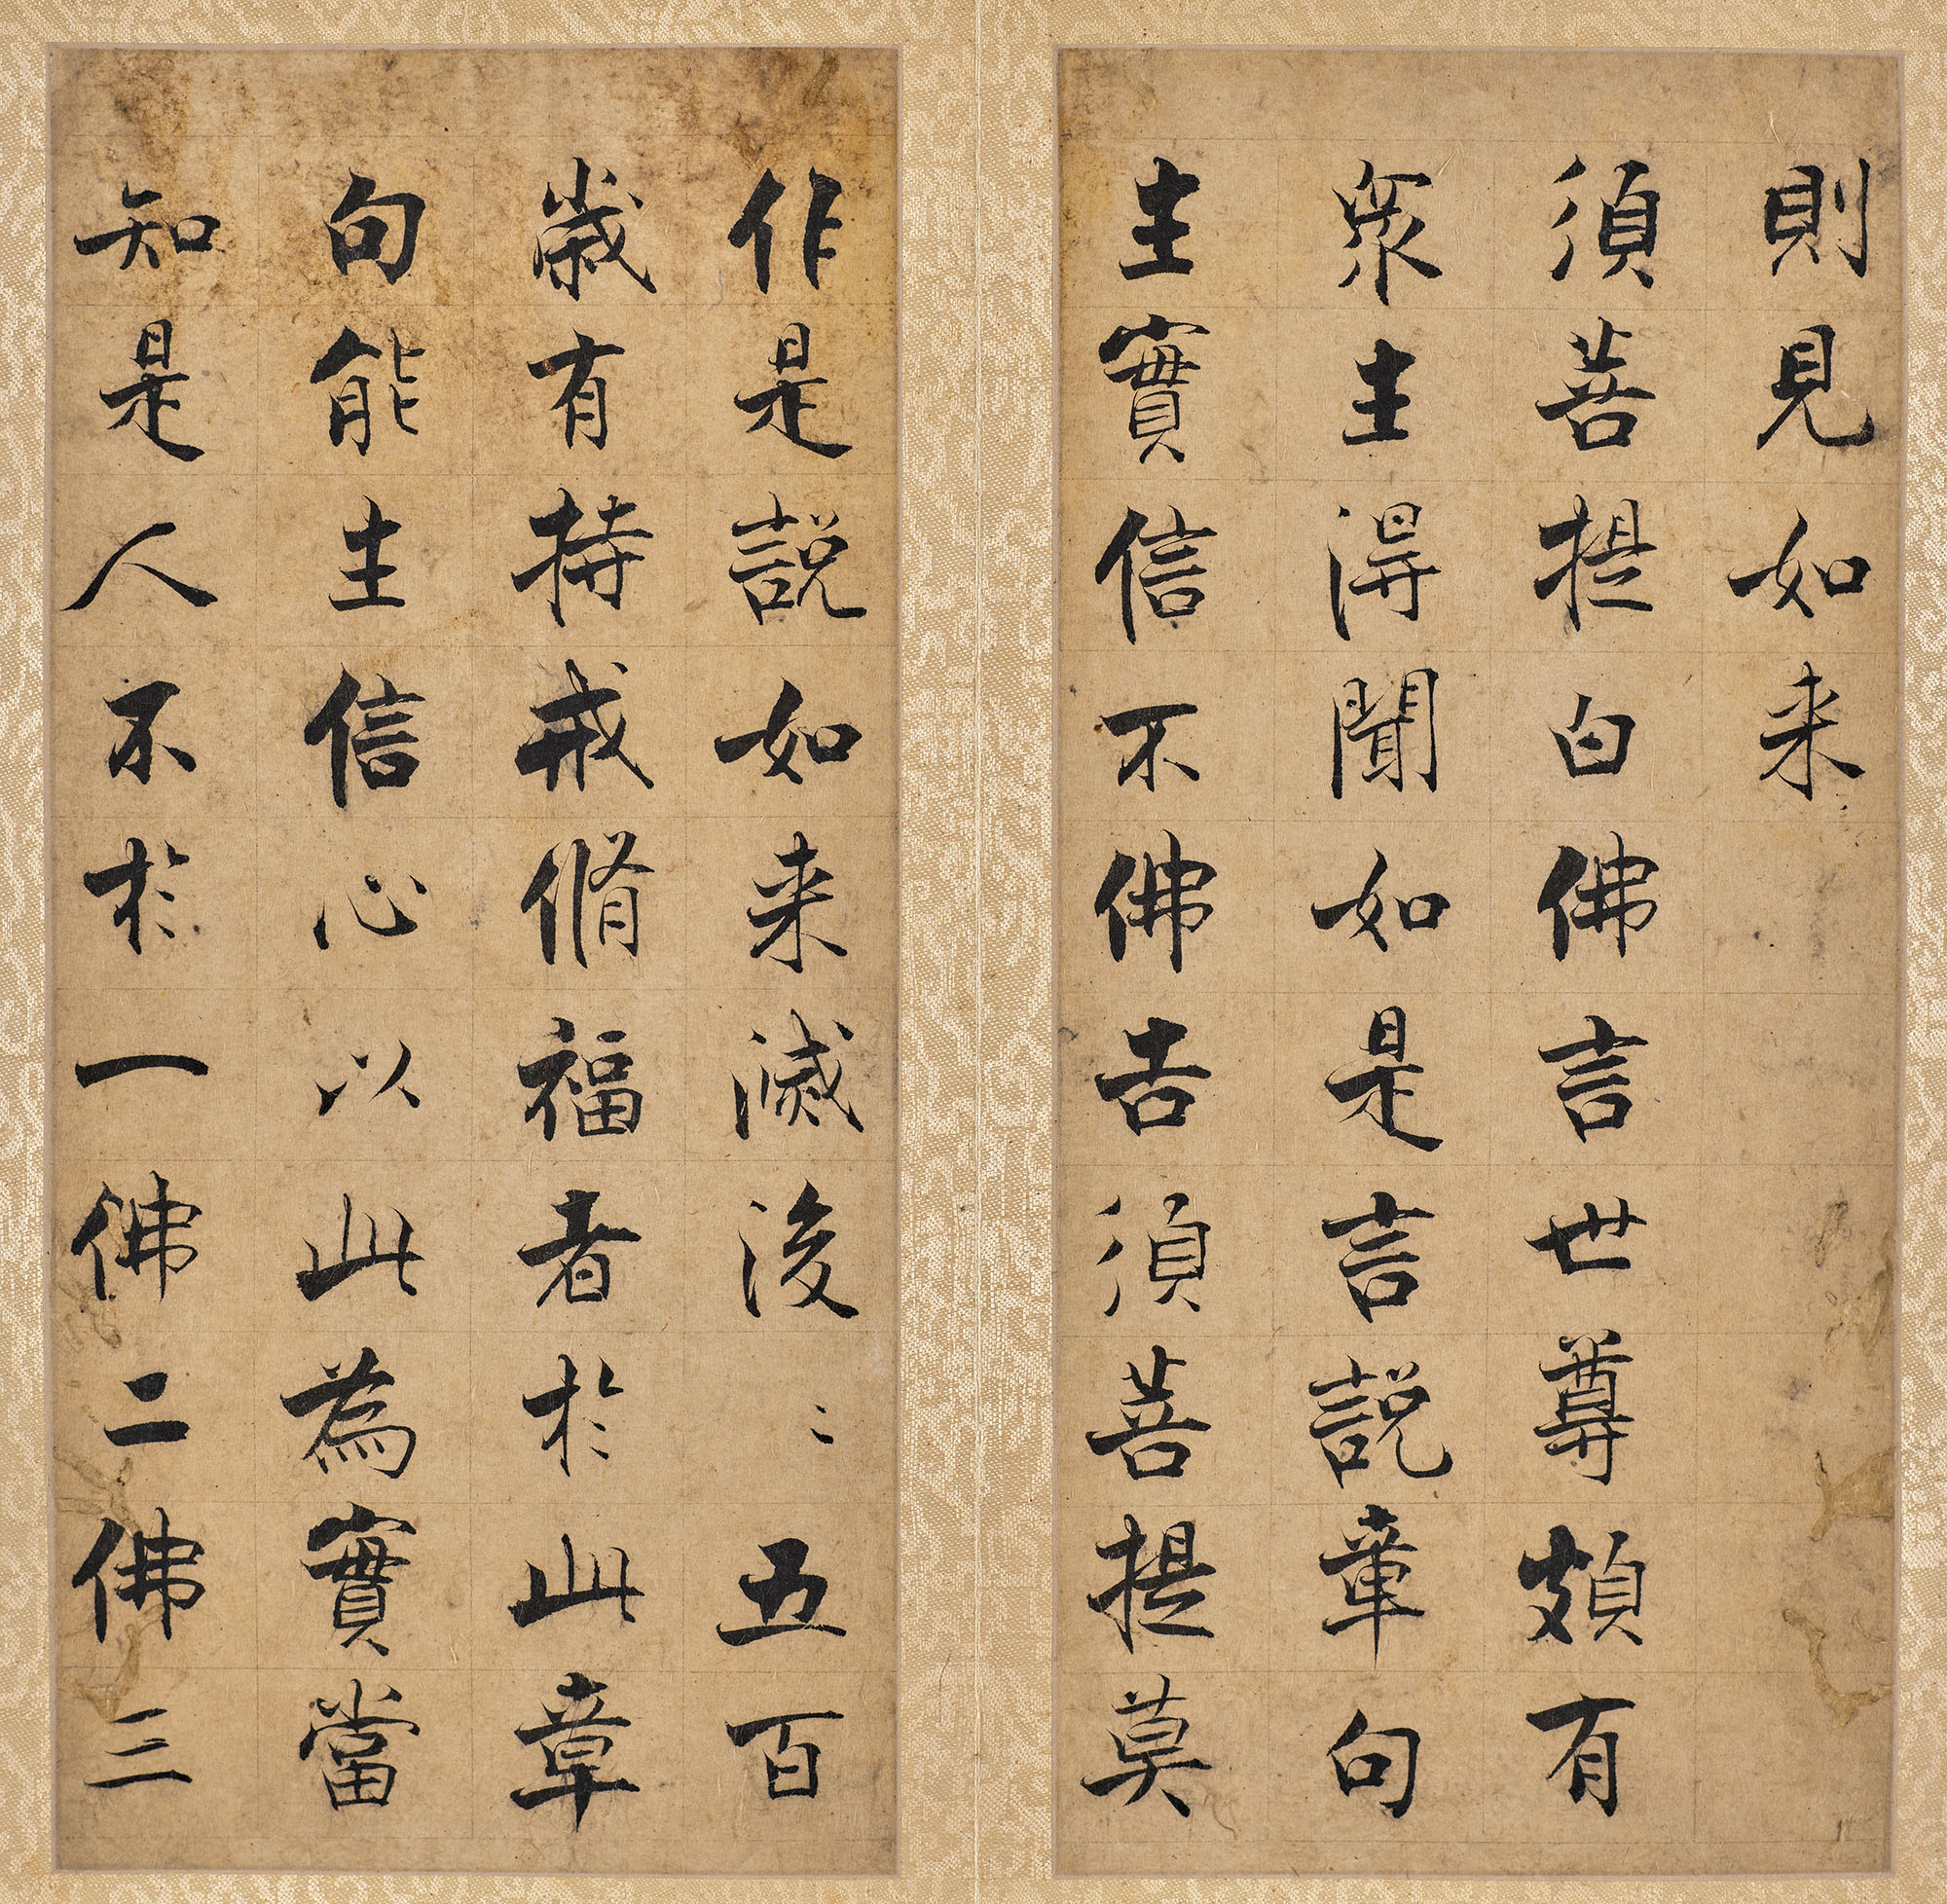 則見如来
須菩提白佛言世尊頗有
衆生得聞如是言說章句
生實信不佛告須菩提莫
作是說如来滅後〻五百
歲有持戒脩福者於此章
句能生信心以此為實當
知是人不於一佛二佛三